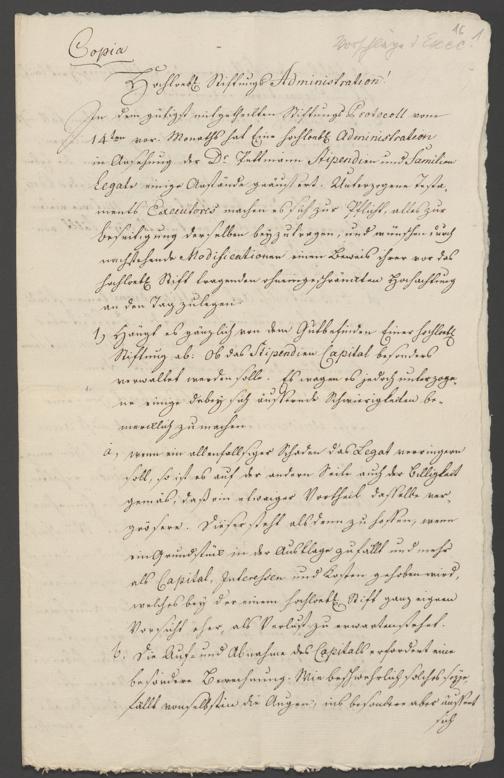 Vorschläge d Exec. 1
16
Copia
Hochloebl Stiftungs Administration!
In dem gütigst mitgetheilten Stiftungs Protocoll vom
14ten vor. Monaths hat Eine hochloebl Administration
in Ansehung der Dr. Stipendien und Familien
Legate einige Anstände geäussert. Unterzogene Testa-
ments Executores machen es sich zur Pflicht, alles zur
beseitigung derselben beyzutragen, und wünschen durch
nachstehende Modificationen einen Beweis ihrer vor das
hochloebl Stift tragenden ohneingeschränkten Hochachtung
an den Tag zulegen.
1, Hängt es gänzlich von dem Gutbefinden Einer hochloebl
Stiftung ab: Ob das Stipendien Capital besonders
verwaltet werden solle. Es wagen es jedoch unterzoge-
ne einige dabey sich äussernde Schwierigkeiten be-
merklich zu machen.
a, wenn ein allenfallsiger Schaden das Legat verringern
soll, so ist es auf der andern Seite auch der Billigkeit
gemäs, daß ein etwaiger Vortheil dasselbe ver-
grösere. Dieser steht alsdenn zu hoffen, wenn
ein Grundstük in der Ausklage zufällt und mehr
als Capital, Interessen und Kosten gehoben wird,
welches bey der einem hochloebl Stift ganz eignen
Vorsicht eher, als Verlust zu erwarten stehet.
b. Die Auf- und Abnahme des Capitals erfordert eine
besondere Berechnung. Wie beschwehrlich solches seye,
fällt von selbst in die Augen; ins besondere aber äussert
sich